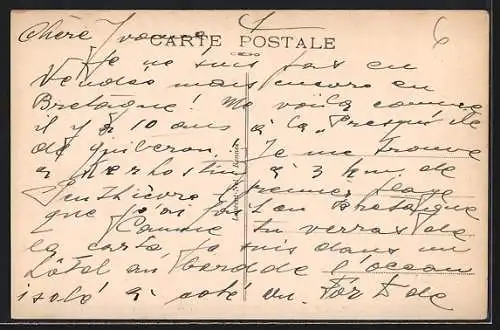 Chère Yvonne,
CARTE POSTALE
6
Je ne suis pas en
Vendée mais encore en
Bretagne! Me voilà comme
il y a 10 ans à la "Presqu'île
de Quiberon. Je me trouve
à Kerhostin à 3 km. de
Penthièvre, première plage
que j'ai fait en Bretagne
Comme tu verras de
la carte je suis dans un
hôtel au bord de l'océan
isolé à côté du Fort de